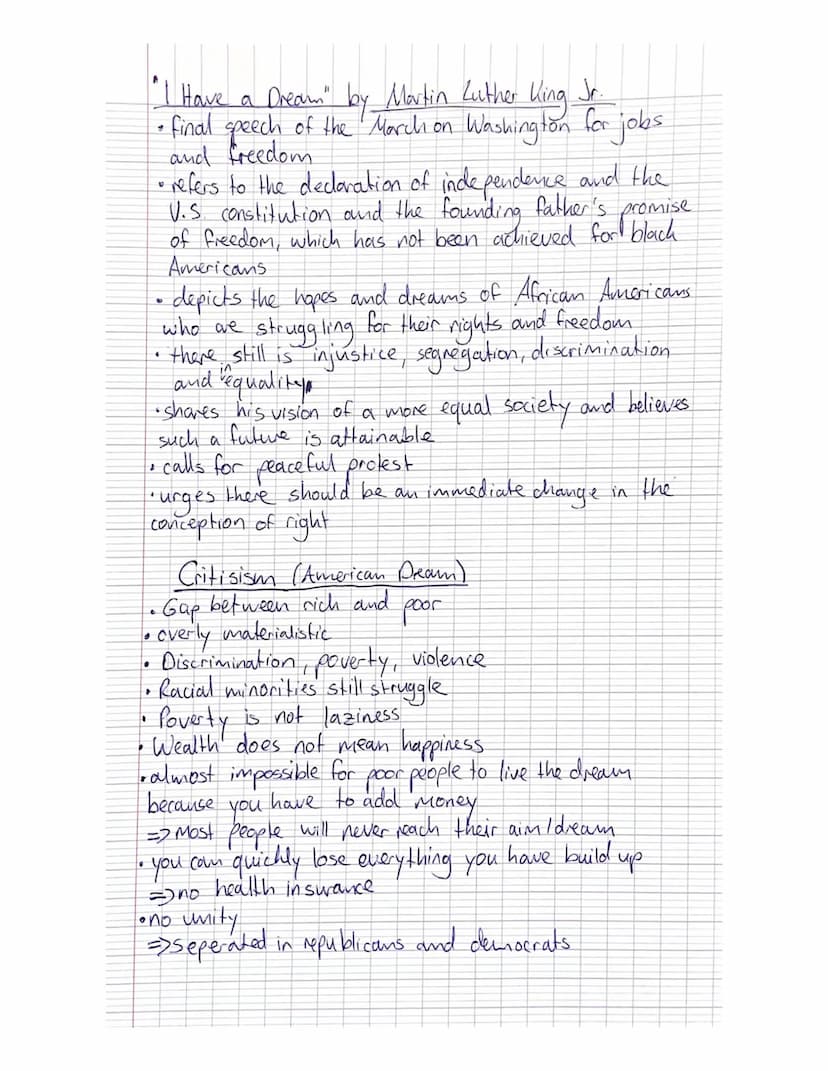 "I Have a Dream" by Martin Luther King Jr.
• final speech of the March on Washington for jobs
and freedom
• refers to the declaration of independence and the
U.S. constitution and the founding father's promise
of freedom, which has not been achieved for black
Americans
• depicts the hopes and dreams of African Americans
who are struggling for their rights and freedom
• there still is injustice, segregation, discrimination
and inequality
• shares his vision of a more equal society and believes
such a future is attainable
• calls for peaceful protest
• urges there should be an immediate change in the
conception of right
Critisism (American Dream)
• Gap between rich and poor
• overly materialistic
• Discrimination, poverty, violence
• Racial minorities still struggle
• Poverty is not laziness
• Wealth does not mean happiness
• almost impossible for poor people to live the dream
because you have to add money
=> Most people will never reach their aim/dream
• you can quickly lose everything you have build up
=> no health insurance
• no unity
=> seperated in republicans and democrats